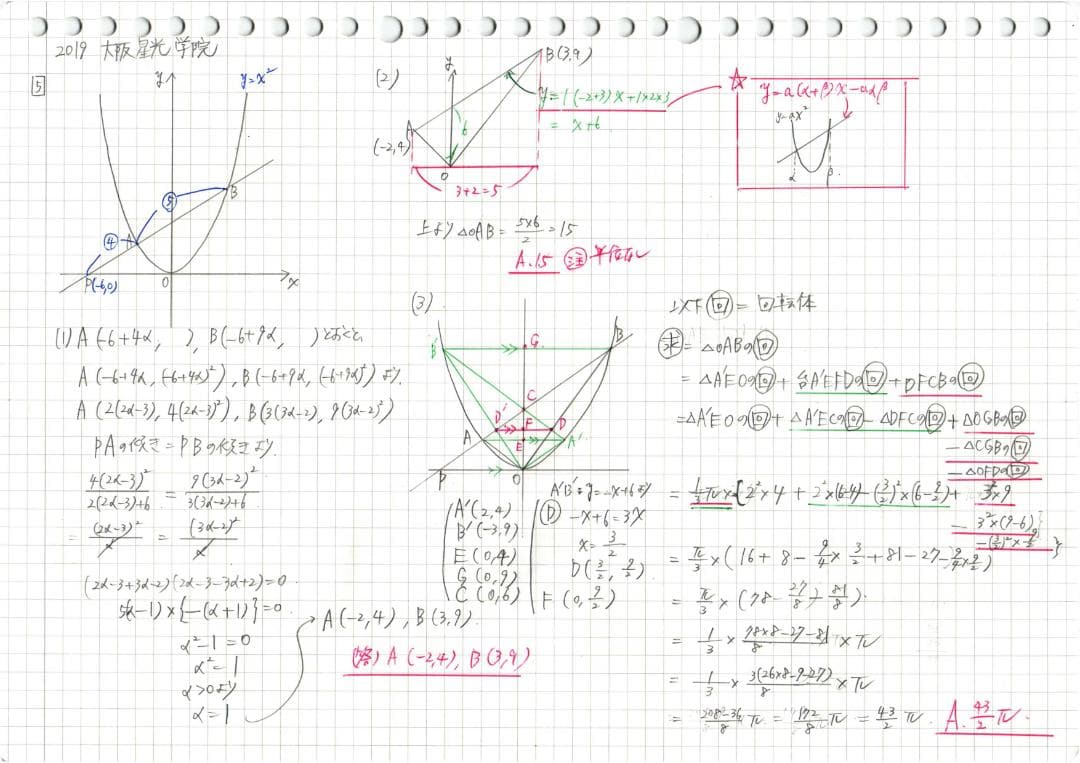 2019 大阪星光学院
5
y
y=x²
⑤
④
A
B
P(-6,0)
O
x
(1) A (-6+4α, ), B(-6+9α, )とおくと
A (-6+4α, (-6+4α)²), B(-6+9α, (-6+9α)²) より.
A (2(2α-3), 4(2α-3)²), B(3(3α-2), 9(3α-2)²)
PAの傾き=PBの傾きより.
4(2α-3)²/2(2α-3)+6 = 9(3α-2)²/3(3α-2)+6
= (2α-3)²/α = (3α-2)²/α
(2α-3+3α-2)(2α-3-3α+2)=0
5(α-1)×{-(α+1)}=0
α²-1=0
α²=1
α>0より
α=1
A(-2,4), B(3,9)
(答) A(-2,4), B(3,9)
(2)
y
B(3,9)
y=1(-2+3)x+1×2×3
= x+6
6
A
(-2,4)
O
3+2=5
☆ y=a(α+β)x-aαβ
y=ax²
α
β
上より△OAB=5×6/2=15
A.15 注 単位なし
(3)
B'
G
B
C
D'
F
D
A
E
A'
P
O
A'(2,4)
B'(-3,9)
E(0,4)
G(0,9)
C(0,6)
A'B':y=-x+6より
D -x+6=3x
x=3/2
D(3/2, 9/2)
F(0, 9/2)
以下回=回転体
求=△OABの回
=△A'EOの回+台A'EFDの回+DFCBの回
=△A'EOの回+△A'ECの回-△DFCの回+△OGBの回
-△CGBの回
-△OFDの回
=1/3π×{2²×4+2²×(6-4)-(3/2)²×(6-9/2)+3²×9
-3²×(9-6)
-(3/2)²×9/2}
=π/3×(16+8-9/4×3/2+81-27-9/4×9/2)
=π/3×(78-27/8-81/8)
=1/3×78×8-27-81/8×π
=1/3×3(26×8-9-27)/8×π
=208-36/8π=172/8π=43/2π.
A.43/2π.